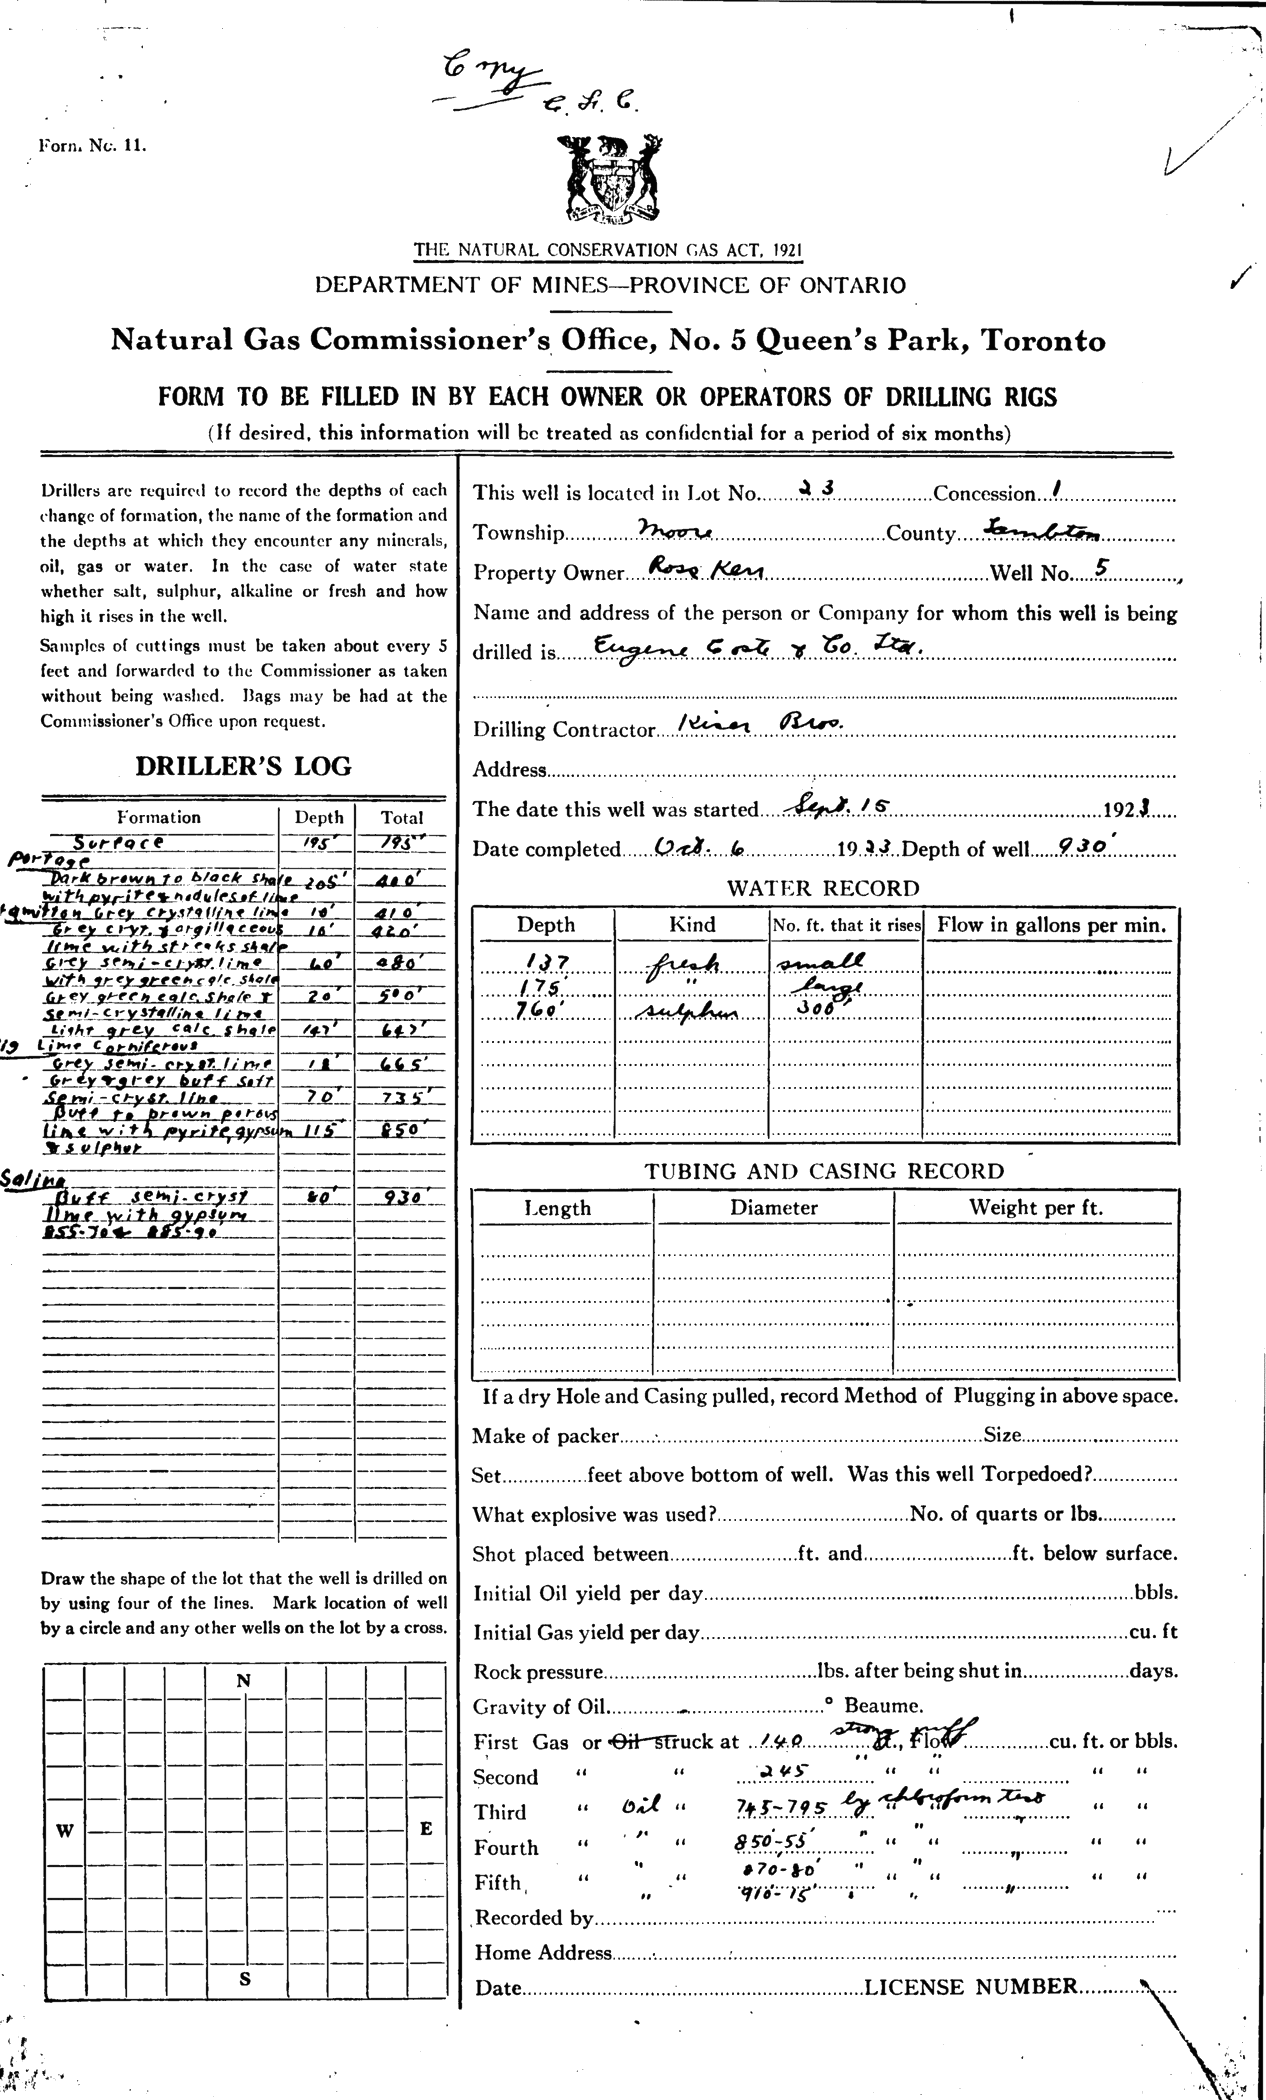 Copy
C. S. C.
Form. No. 11.
THE NATURAL CONSERVATION GAS ACT, 1921
DEPARTMENT OF MINES—PROVINCE OF ONTARIO
Natural Gas Commissioner's Office, No. 5 Queen's Park, Toronto
FORM TO BE FILLED IN BY EACH OWNER OR OPERATORS OF DRILLING RIGS
(If desired, this information will be treated as confidential for a period of six months)
Drillers are required to record the depths of each
change of formation, the name of the formation and
the depths at which they encounter any minerals,
oil, gas or water. In the case of water state
whether salt, sulphur, alkaline or fresh and how
high it rises in the well.
Samples of cuttings must be taken about every 5
feet and forwarded to the Commissioner as taken
without being washed. Bags may be had at the
Commissioner's Office upon request.
DRILLER'S LOG
Formation Depth Total
Surface 195' 195'
Portage
Dark brown to black shale 205' 400'
with pyrite & nodules of lime
Grey crystalline lime 10' 410'
Grey cryt. & argillaceous 10' 420'
lime with streaks shale
Grey semi-cryst. lime 60' 480'
with grey green calc. shale
Grey green calc. shale & 20' 500'
semi-crystalline lime
Light grey calc. shale 147' 647'
Big Lime Corniferous
Grey semi-cryst. lime 18' 665'
Grey & grey buff soft
Semi-cryst. line 70' 735'
Buff to brown porous
line with pyrite, gypsum 115' 850'
& sulphur
Salina
Buff semi-cryst 80' 930'
lime with gypsum
855-70 & 885-90'
Draw the shape of the lot that the well is drilled on
by using four of the lines. Mark location of well
by a circle and any other wells on the lot by a cross.
N
W E
S
This well is located in Lot No. 23 Concession 1
Township Moore County Lambton
Property Owner Ross Kerr Well No. 5
Name and address of the person or Company for whom this well is being
drilled is Eugene Coste & Co. Ltd.
Drilling Contractor Kiser Bros.
Address
The date this well was started Sept. 15 1923
Date completed Oct. 6 1923 Depth of well 930'
WATER RECORD
Depth Kind No. ft. that it rises Flow in gallons per min.
137 fresh small
175' " large
760' sulphur 300'
TUBING AND CASING RECORD
Length Diameter Weight per ft.
If a dry Hole and Casing pulled, record Method of Plugging in above space.
Make of packer Size
Set feet above bottom of well. Was this well Torpedoed?
What explosive was used? No. of quarts or lbs.
Shot placed between ft. and ft. below surface.
Initial Oil yield per day bbls.
Initial Gas yield per day cu. ft
Rock pressure lbs. after being shut in days.
Gravity of Oil ° Beaume.
First Gas or Oil struck at 140 strong puff ft., Flow cu. ft. or bbls.
Second " " 245 " " " " " "
Third " Oil " 745-795 by chloroform test " " " " "
Fourth " " " 850'-55' " " " " " "
" 870-80' " "
Fifth " " " " " " "
" 910'-15' " " "
Recorded by
Home Address
Date LICENSE NUMBER